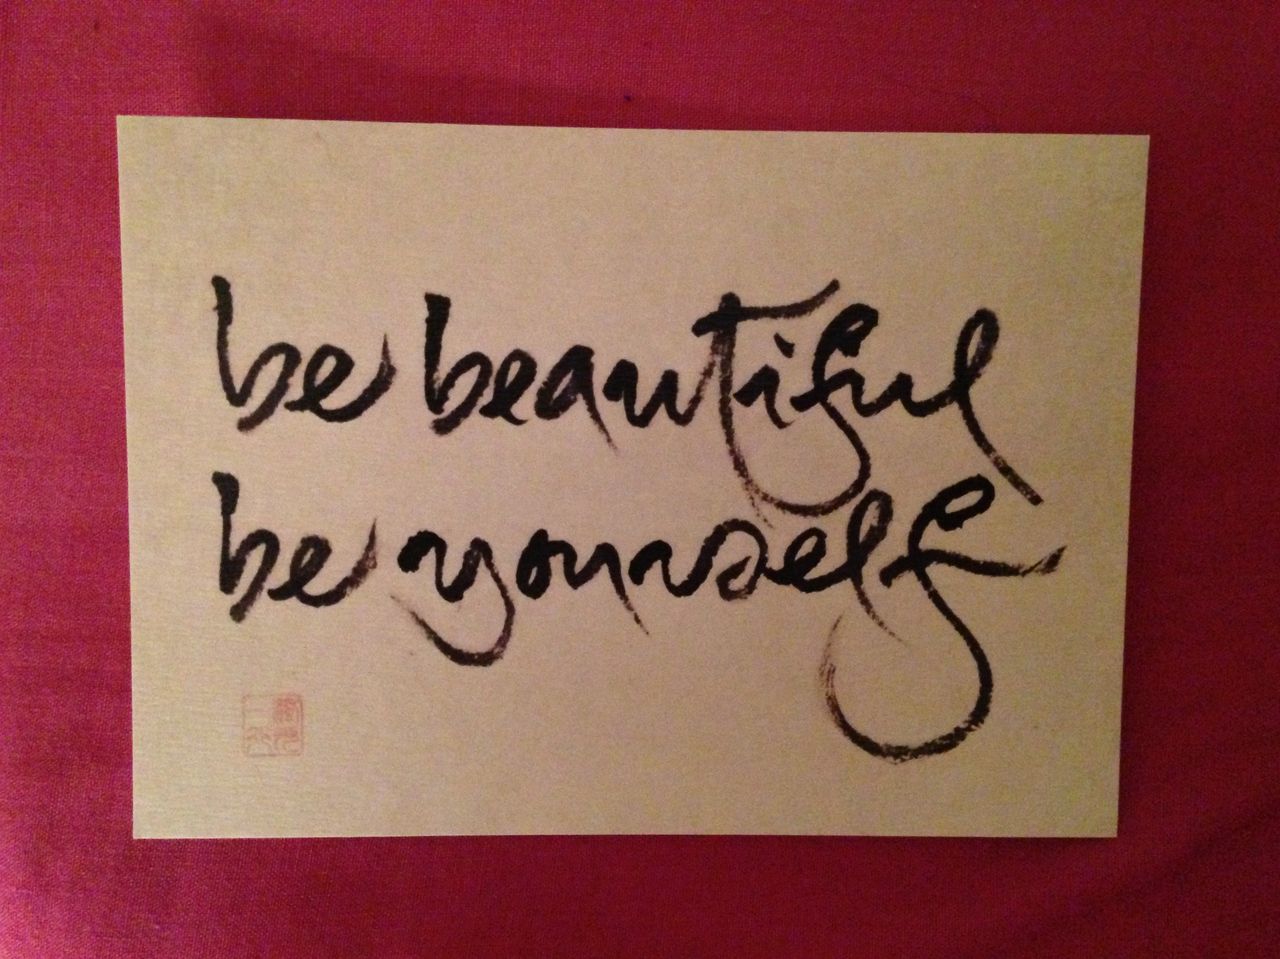 be beautiful
be yourself